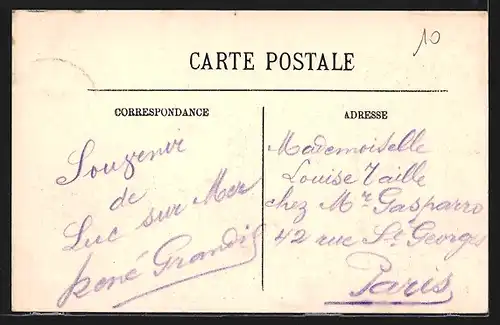 10
CARTE POSTALE
CORRESPONDANCE
Souvenir
de
Luc sur Mer
René Grandil
ADRESSE
Mademoiselle
Louise Taille
chez Mr. Gasparro
42 rue St Georges
Paris